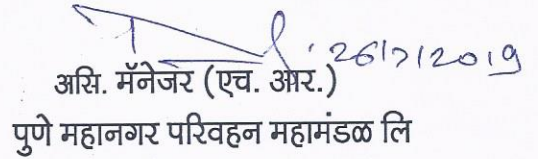 26/7/2019
असि. मॅनेजर (एच. आर.)
पुणे महानगर परिवहन महामंडळ लि